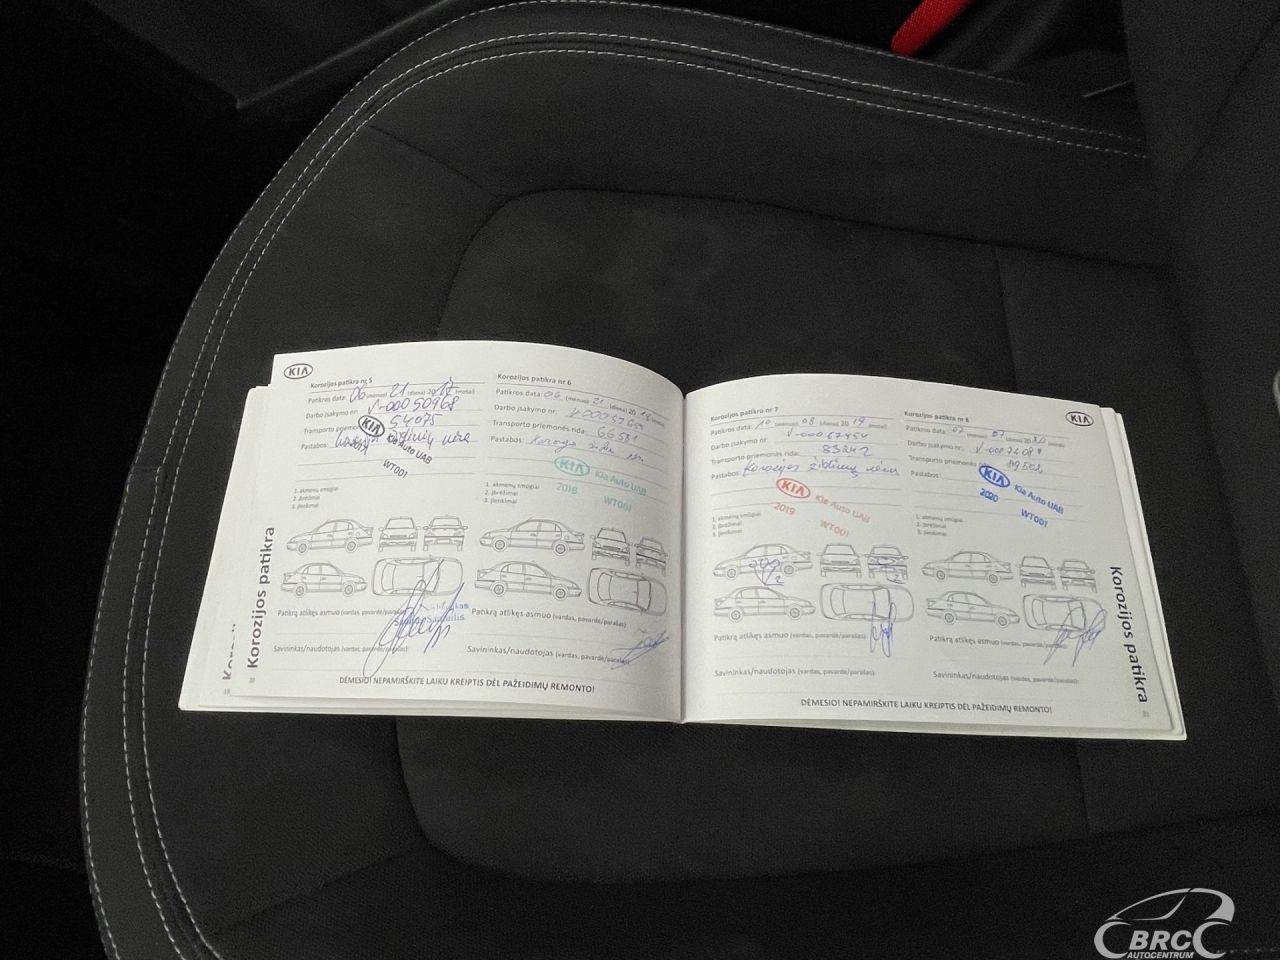 KIA
Korozijos patikra nr 5
Patikros data: 06 (mėnuo) 21 (diena) 20 17 (metai)
Darbo įsakymo nr: V-00050968
Transporto priemo 54075
Pastabos:
KIA Kia Auto UAB
2017 WT001
1. akmenų smūgiai
2. įbrėžimai
3. įlenkimai
Patikrą atlikęs asmuo (vardas, pavardė/parašas)
Savininkas/naudotojas (vardas, pavardė/parašas):
Korozijos patikra nr 6
Patikros data: 06 (mėnuo) 21 (diena) 20 18 (metai)
Darbo įsakymo nr:
Transporto priemonės rida: 66581
Pastabos:
KIA Kia Auto UAB
2018 WT001
1. akmenų smūgiai
2. įbrėžimai
3. įlenkimai
Patikrą atlikęs asmuo (vardas, pavardė/parašas)
Savininkas/naudotojas (vardas, pavardė/parašas):
DĖMESIO! NEPAMIRŠKITE LAIKU KREIPTIS DĖL PAŽEIDIMŲ REMONTO!
Korozijos patikra
Korozijos patikra nr 7
Patikros data: 10 (mėnuo) 08 (diena) 20 19 (metai)
Darbo įsakymo nr:
Transporto priemonės rida: 83242
Pastabos: Korozijos židinių nėra
KIA Kia Auto UAB
2019 WT001
1. akmenų smūgiai
2. įbrėžimai
3. įlenkimai
Patikrą atlikęs asmuo (vardas, pavardė/parašas)
Savininkas/naudotojas (vardas, pavardė/parašas):
Korozijos patikra nr 8
KIA
Patikros data: 07 (mėnuo) 07 (diena) 20 20 (metai)
Darbo įsakymo nr:
Transporto priemonės
Pastabos:
KIA Kia Auto UAB
2020 WT001
1. akmenų smūgiai
2. įbrėžimai
3. įlenkimai
Patikrą atlikęs asmuo (vardas, pavardė/parašas)
Savininkas/naudotojas (vardas, pavardė/parašas):
DĖMESIO! NEPAMIRŠKITE LAIKU KREIPTIS DĖL PAŽEIDIMŲ REMONTO!
Korozijos patikra
BRC
AUTOCENTRUM